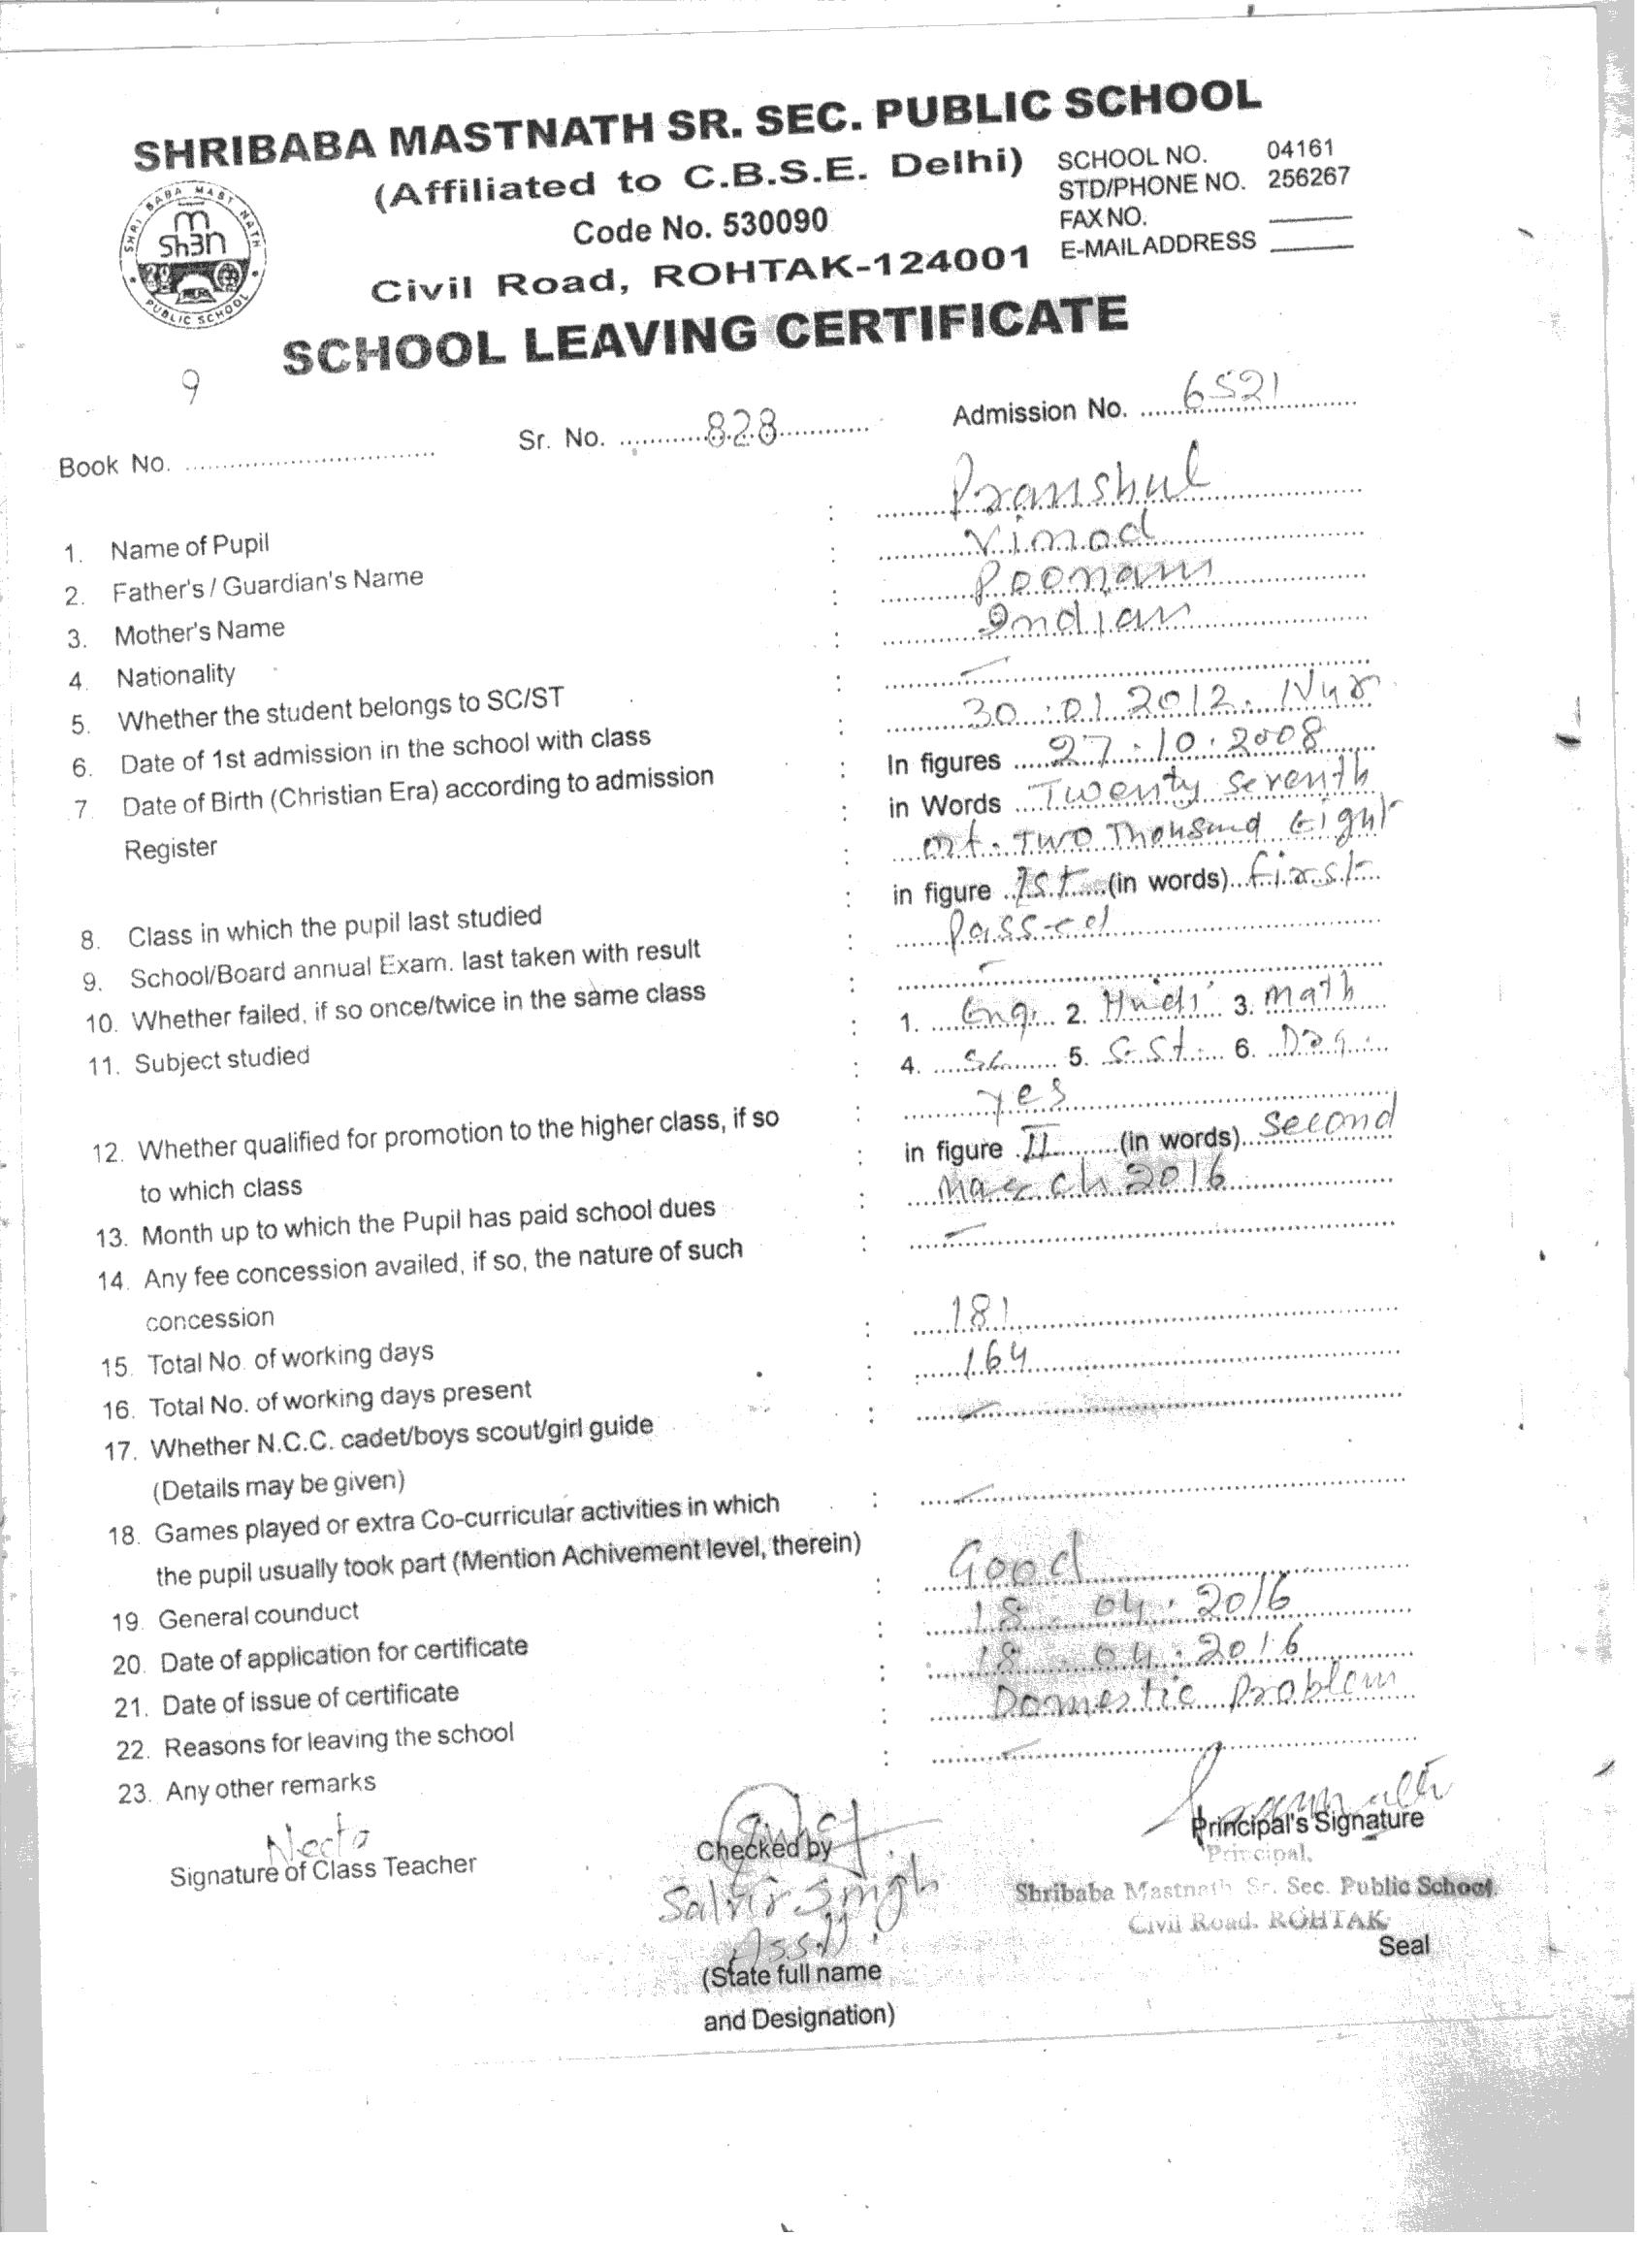 SHRIBABA MASTNATH SR. SEC. PUBLIC SCHOOL
(Affiliated to C.B.S.E. Delhi)
SCHOOL NO. 04161
STD/PHONE NO. 256267
Code No. 530090
FAX NO.
E-MAIL ADDRESS
Civil Road, ROHTAK-124001
SHRI BABA MAST NATH
PUBLIC SCHOOL
SCHOOL LEAVING CERTIFICATE
9
Book No. Sr. No. 828 Admission No. 6521
1. Name of Pupil : Pranshul
2. Father's / Guardian's Name : Vinod
3. Mother's Name : Poonam
4. Nationality : Indian
5. Whether the student belongs to SC/ST : -
6. Date of 1st admission in the school with class : 30.01.2012. Nur
7. Date of Birth (Christian Era) according to admission : In figures 27.10.2008
Register : in Words Twenty Seventh
: Oct. Two Thousand Eight
8. Class in which the pupil last studied : in figure Ist (in words) first
9. School/Board annual Exam. last taken with result : Passed
10. Whether failed, if so once/twice in the same class : -
11. Subject studied : 1. Eng. 2. Hindi 3. Math
: 4. Sc 5. S.St. 6. Drg.
12. Whether qualified for promotion to the higher class, if so : yes
to which class : in figure II (in words) Second
13. Month up to which the Pupil has paid school dues : March 2016
14. Any fee concession availed, if so, the nature of such : -
concession
15. Total No. of working days : 181
16. Total No. of working days present : 164
17. Whether N.C.C. cadet/boys scout/girl guide : -
(Details may be given)
18. Games played or extra Co-curricular activities in which : -
the pupil usually took part (Mention Achivement level, therein)
19. General counduct : Good
20. Date of application for certificate : 18.04.2016
21. Date of issue of certificate : 18.04.2016
22. Reasons for leaving the school : Domestic Problem
23. Any other remarks : -
Neeta
Signature of Class Teacher
Checked by
Singh
(State full name
and Designation)
Principal's Signature
Principal,
Shribaba Mastnath Sr. Sec. Public School
Civil Road, ROHTAK
Seal